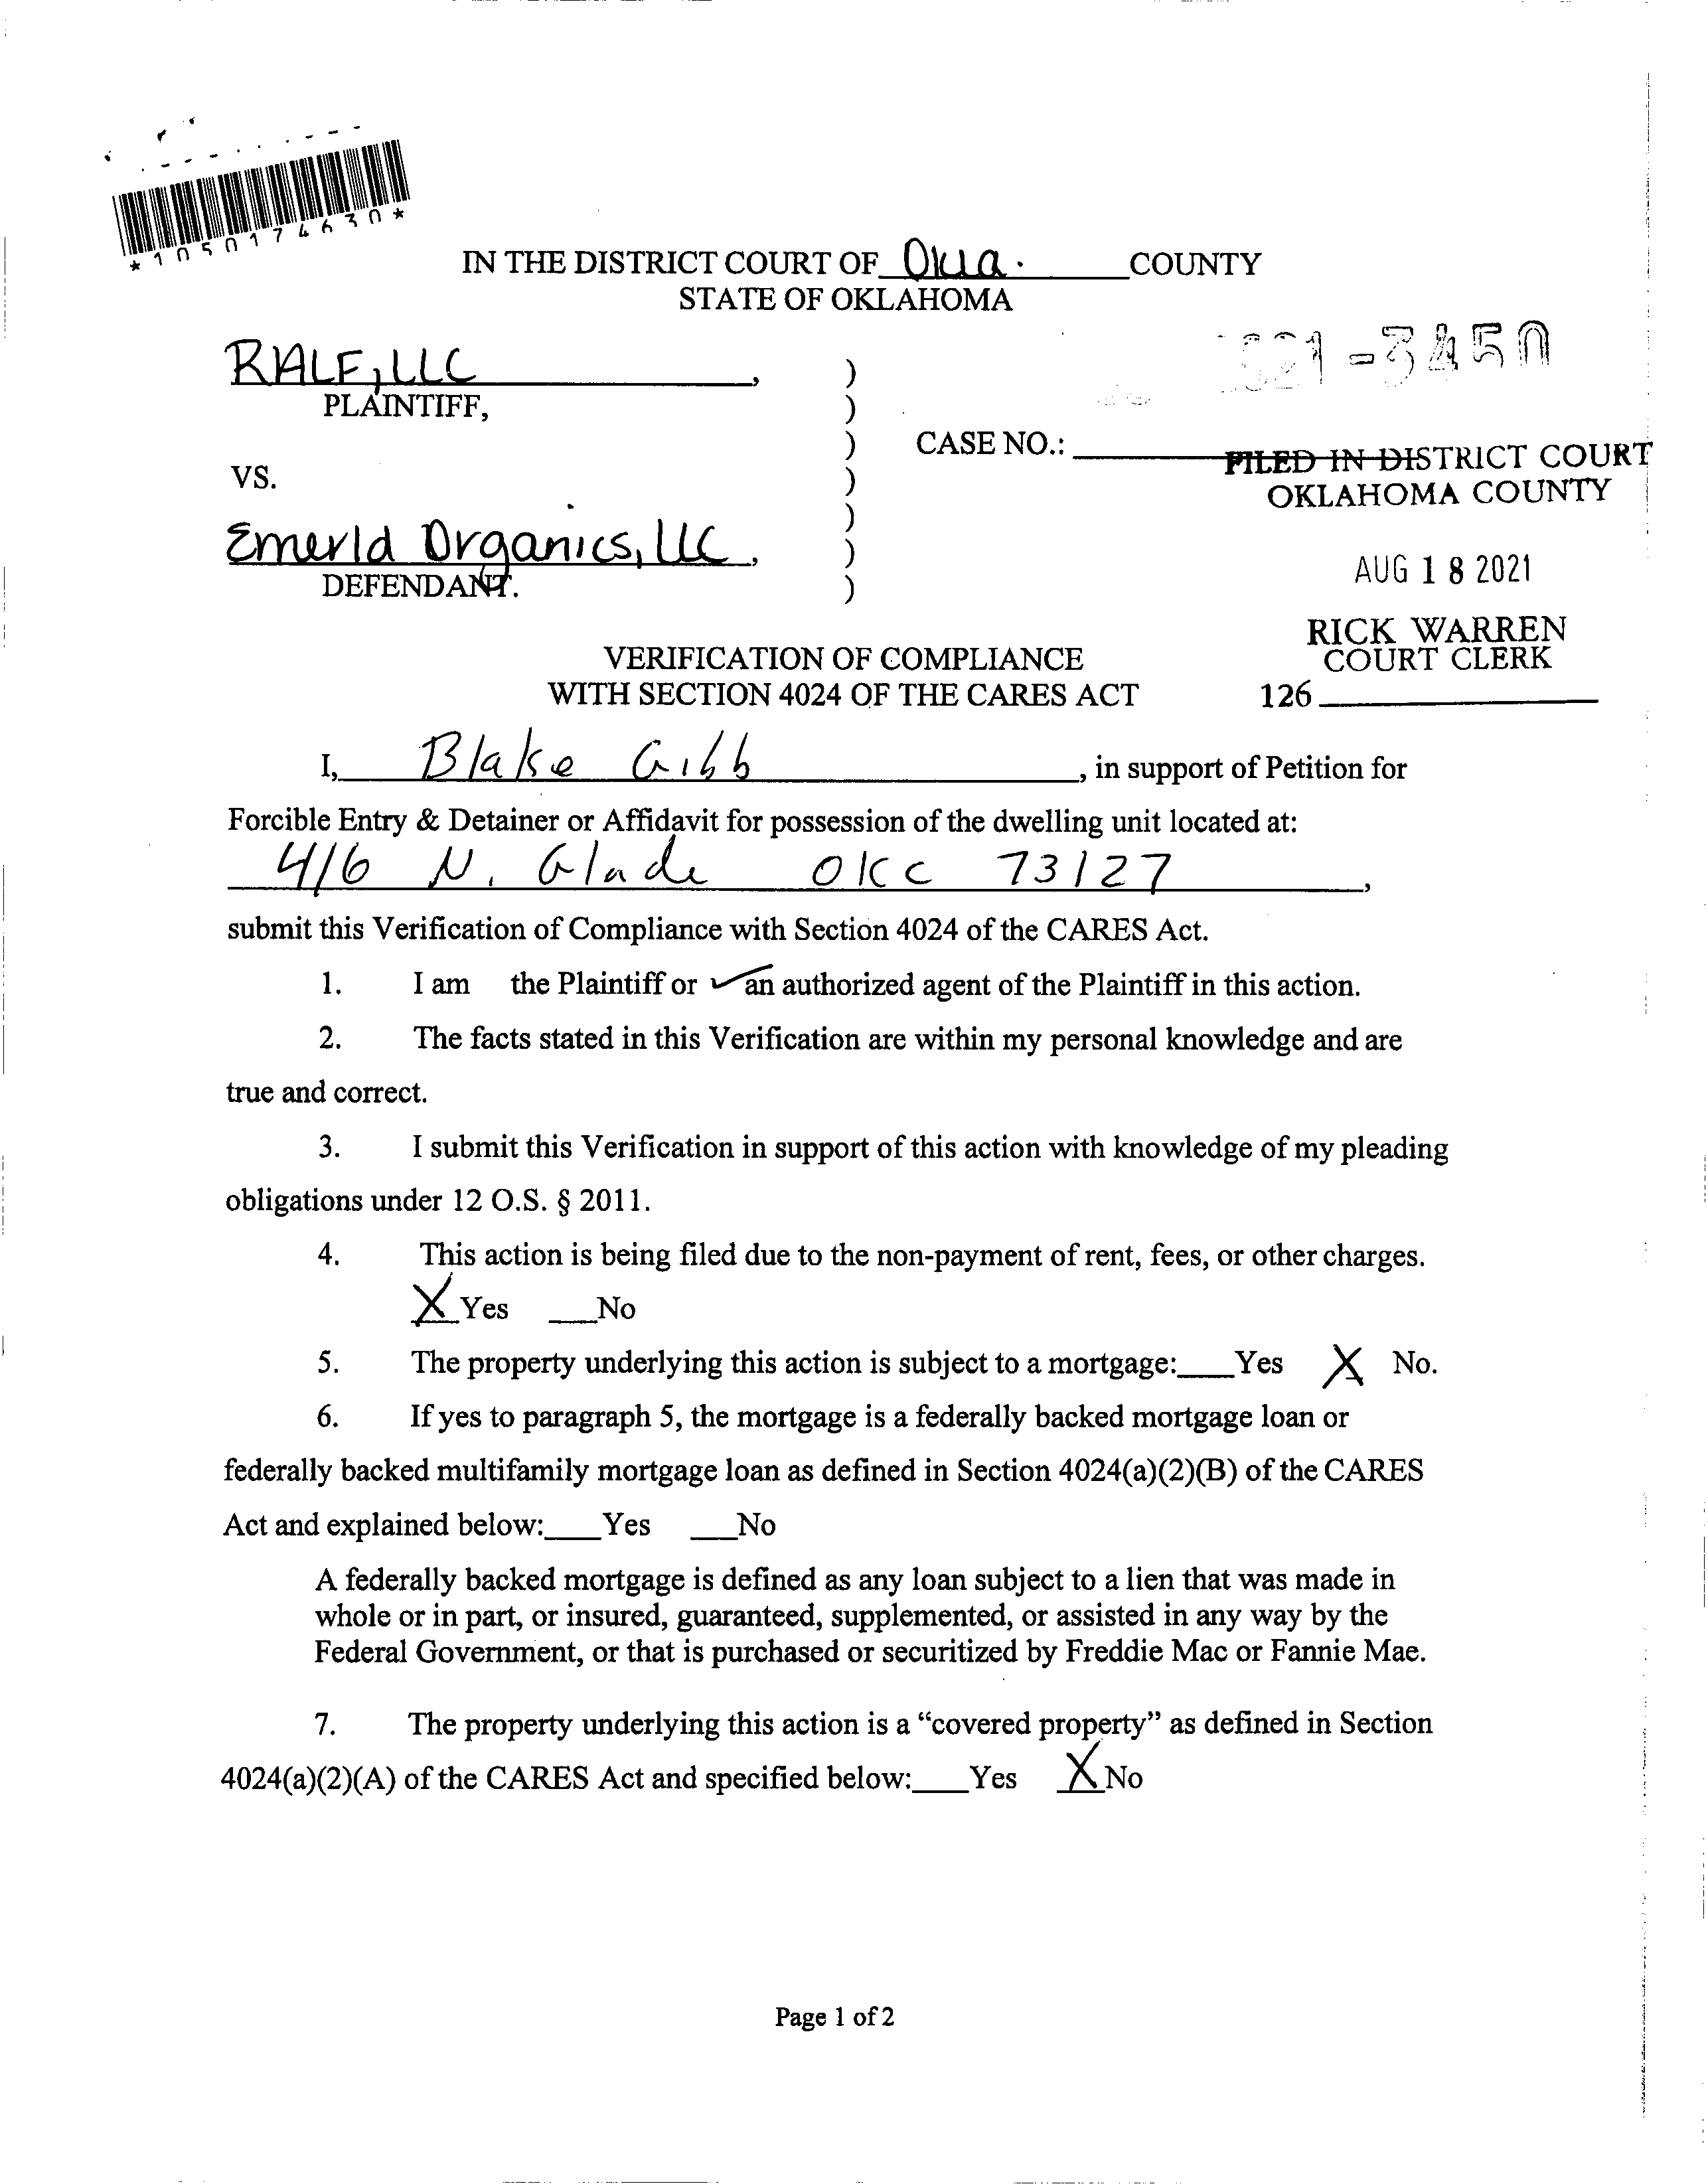 *1050174630*
IN THE DISTRICT COURT OF Okla. COUNTY
STATE OF OKLAHOMA
RALF, LLC,
PLAINTIFF,
VS.
Emerld Organics, LLC,
DEFENDANT.
)
)
)
)
)
)
)
21-3450
CASE NO.:
FILED IN DISTRICT COURT
OKLAHOMA COUNTY
AUG 18 2021
RICK WARREN
COURT CLERK
126
VERIFICATION OF COMPLIANCE
WITH SECTION 4024 OF THE CARES ACT
I, Blake Gibb, in support of Petition for
Forcible Entry & Detainer or Affidavit for possession of the dwelling unit located at:
416 N. Glade OKC 73127,
submit this Verification of Compliance with Section 4024 of the CARES Act.
1. I am the Plaintiff or ✓ an authorized agent of the Plaintiff in this action.
2. The facts stated in this Verification are within my personal knowledge and are
true and correct.
3. I submit this Verification in support of this action with knowledge of my pleading
obligations under 12 O.S. § 2011.
4. This action is being filed due to the non-payment of rent, fees, or other charges.
X Yes ___No
5. The property underlying this action is subject to a mortgage:___Yes X No.
6. If yes to paragraph 5, the mortgage is a federally backed mortgage loan or
federally backed multifamily mortgage loan as defined in Section 4024(a)(2)(B) of the CARES
Act and explained below:___Yes ___No
A federally backed mortgage is defined as any loan subject to a lien that was made in
whole or in part, or insured, guaranteed, supplemented, or assisted in any way by the
Federal Government, or that is purchased or securitized by Freddie Mac or Fannie Mae.
7. The property underlying this action is a “covered property” as defined in Section
4024(a)(2)(A) of the CARES Act and specified below:___Yes X No
Page 1 of 2